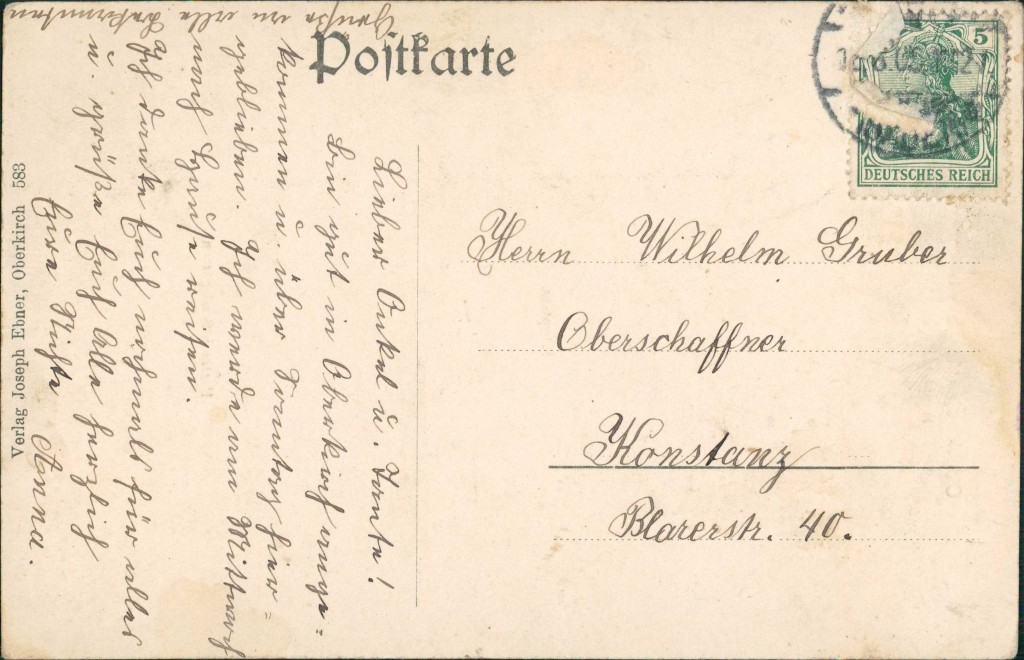 Postkarte
DEUTSCHES REICH
5
Herrn Wilhelm Gruber
Oberschaffner
Konstanz
Blarerstr. 40.
Lieber Onkel u. Tante!
Bin gut in Oberkirch ange-
kommen u. über Sonntag hier-
geblieben. Ich werde am Mittwoch
nach Hause reisen.
Ich danke Euch nochmals für alles
u. grüße Euch Alle herzlich
Eure Nichte Anna.
Grüße an alle
Verlag Joseph Ebner, Oberkirch 583